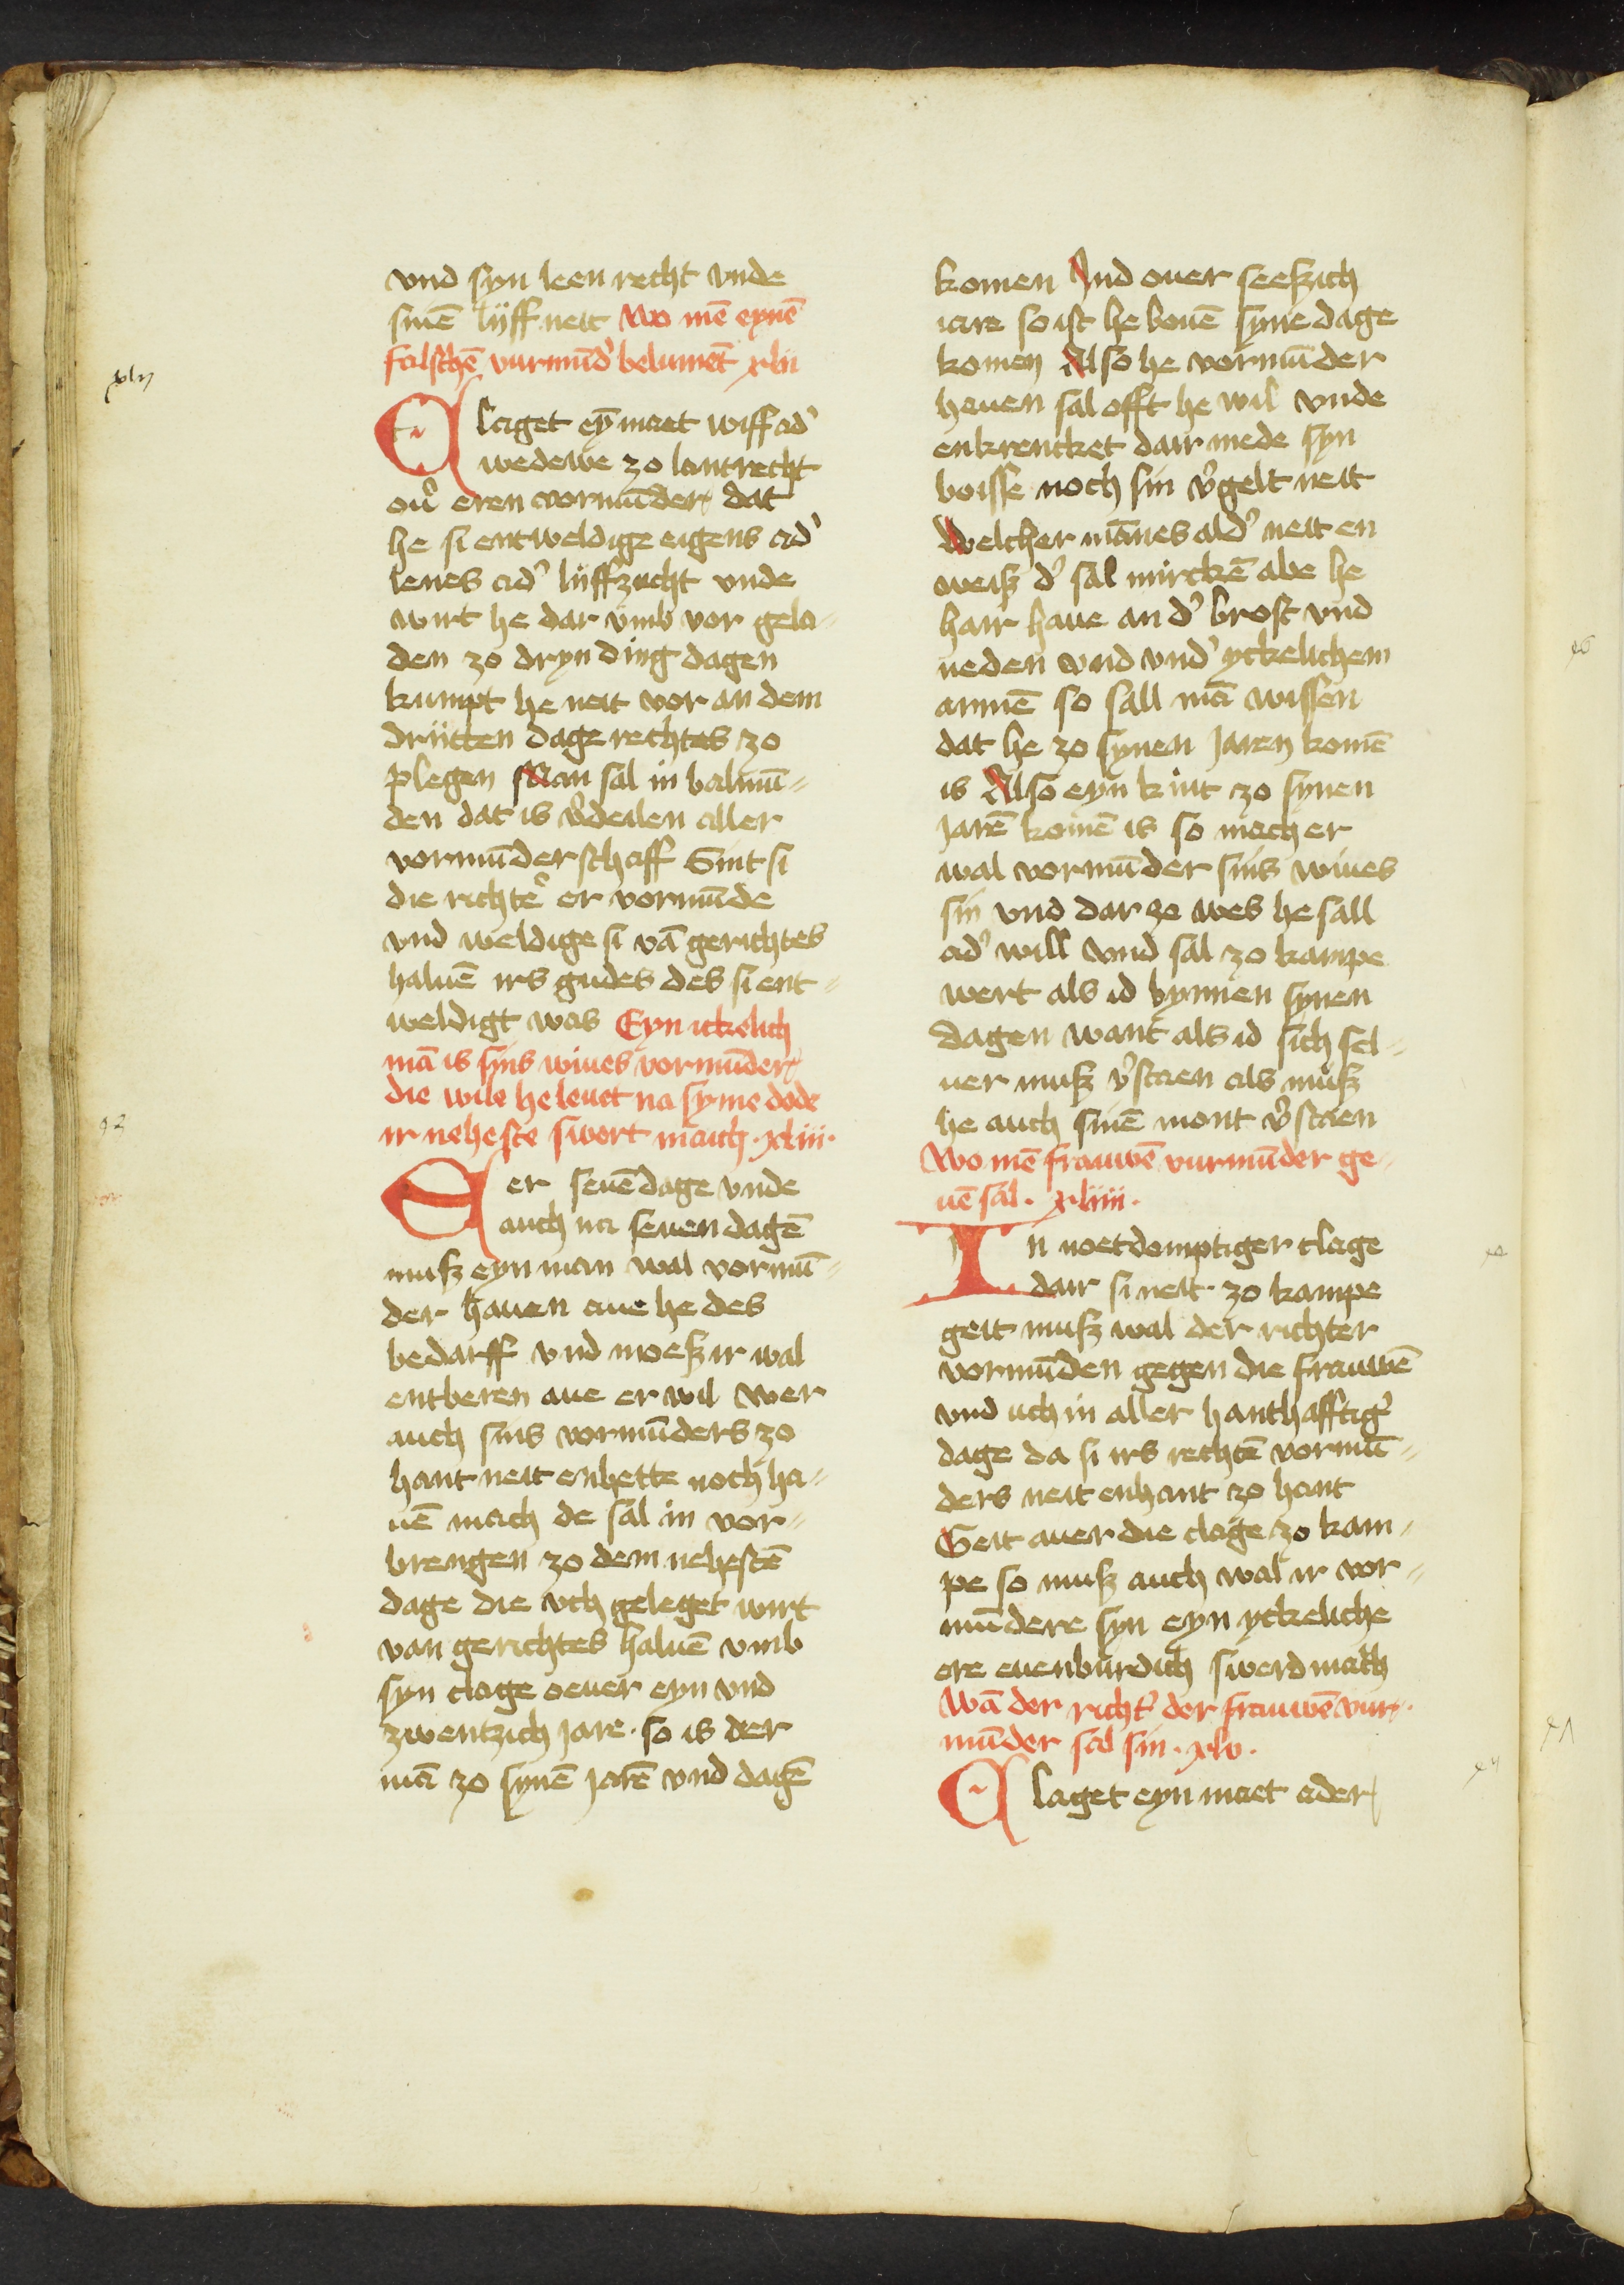 vnd syn leen recht vnde
sinē lijff neit Wo mē eynē
falschē vurmūd' belumet xlii
Claget eȳ maet wiff ad'
wedewe zo lantrecht
ou' eren vormūder dat
he si entweldige eigens ad'
lenes ad' lijffzucht vnde
wirt he dar vmb vor gela-
den zo dryn ding dagen
kumpt he neit vor an dem
drütten dage rechtes zo
plegen Man sal in balmū-
den dat is v'deilen aller
vormūderschaff Sint si
die richte' er vormūde
vnd weldige si vā gerichtes
haluē irs gudes des si ent-
weldigt was Eyn ickelich
mā is sins wiues vormūder
die wile he leuet na syme dode
ir neheste swert maich · xliii ·
Der seuē dage vnde
auch na seuen dagē
muß eyn man wal vormū-
der hauen aue he des
bedarff vnd moeß ir wal
entberen aue er wil Wer
auch sins vormūders zo
hant neit enhette noch ha-
uē mach de sal in vor-
brengen zo dem nehestē
dage die vch geleget wirt
van gerichtes haluē vmb
syn clage oeuer eyn vnd
zwentzich jare · so is der
mā zo synē jarē vnd dagē
komen Ind ouer seeßzich
iare so ist he bouē syne dage
komen Also he vormūder
hauen sal offt he wil vnde
enkrencket dair mede syn
boisse noch sin v'gelt neit
Welcher mānes ald' neit en
weiß d' sal mircken abe he
hair haue an d' brost vnd
neden vnd vnd' yckelichem
armē so sall mā wissen
dat he zo synen Jaren komē
is Also eyn kint zo synen
jarē komē is so mach er
wal vormūder sins wiues
sin vnd dar zo wes he sall
ad' will vnd sal zo kampe
wert als id bynnen synen
dagen want als id sich sel-
uer muß v'staen als muß
he auch sinē mont v'staen
Wo mē frauwē vurmūder ge-
uē sal · xliiii ·
In noetdomptiger clage
dair si neit zo kampe
geit muß wal der richter
vormūden gegen die frauwē
vnd uch in aller hanthafftig'
dage da si irs rechtē vormū-
ders neit enhant zo hant
Geit auer die clage zo kam-
pe so muß auch wal ir vor-
mūdere syn eyn yckeliche
ere euenburdich swerd maich
Wā der richt' der frauwē vur-
mūder sal sin · xlv ·
Claget eyn maet ader
xlij
42